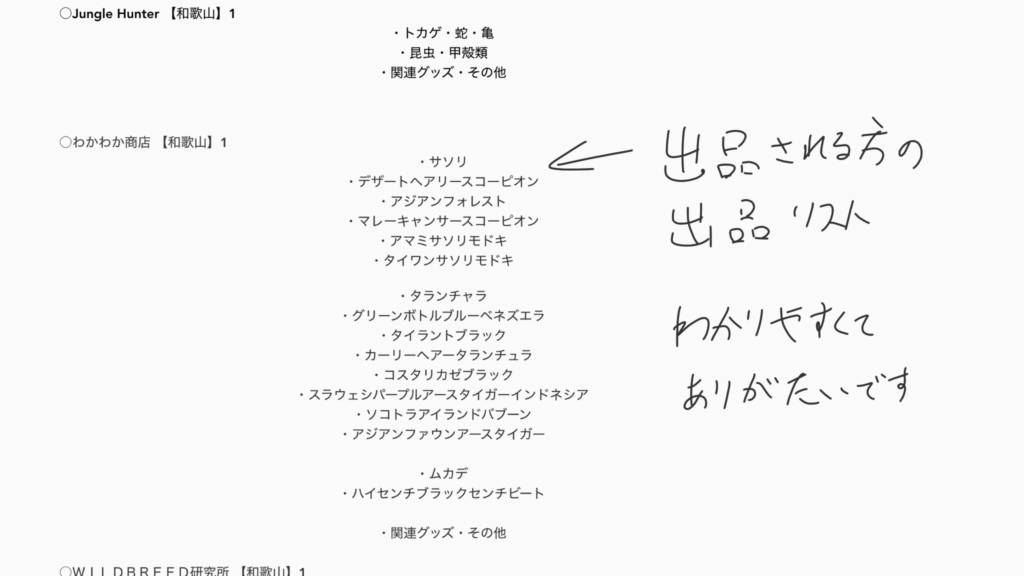 ○Jungle Hunter 【和歌山】1
・トカゲ・蛇・亀
・昆虫・甲殻類
・関連グッズ・その他
○わかわか商店 【和歌山】1
・サソリ
・デザートヘアリースコーピオン
・アジアンフォレスト
・マレーキャンサースコーピオン
・アマミサソリモドキ
・タイワンサソリモドキ
・タランチャラ
・グリーンボトルブルーベネズエラ
・タイラントブラック
・カーリーヘアータランチュラ
・コスタリカゼブラック
・スラウェシパープルアースタイガーインドネシア
・ソコトラアイランドバブーン
・アジアンファウンアースタイガー
・ムカデ
・ハイセンチブラックセンチビート
・関連グッズ・その他
○ＷＩＬＤＢＲＥＥＤ研究所 【和歌山】1
出品される方の
出品リスト
わかりやすくて
ありがたいです